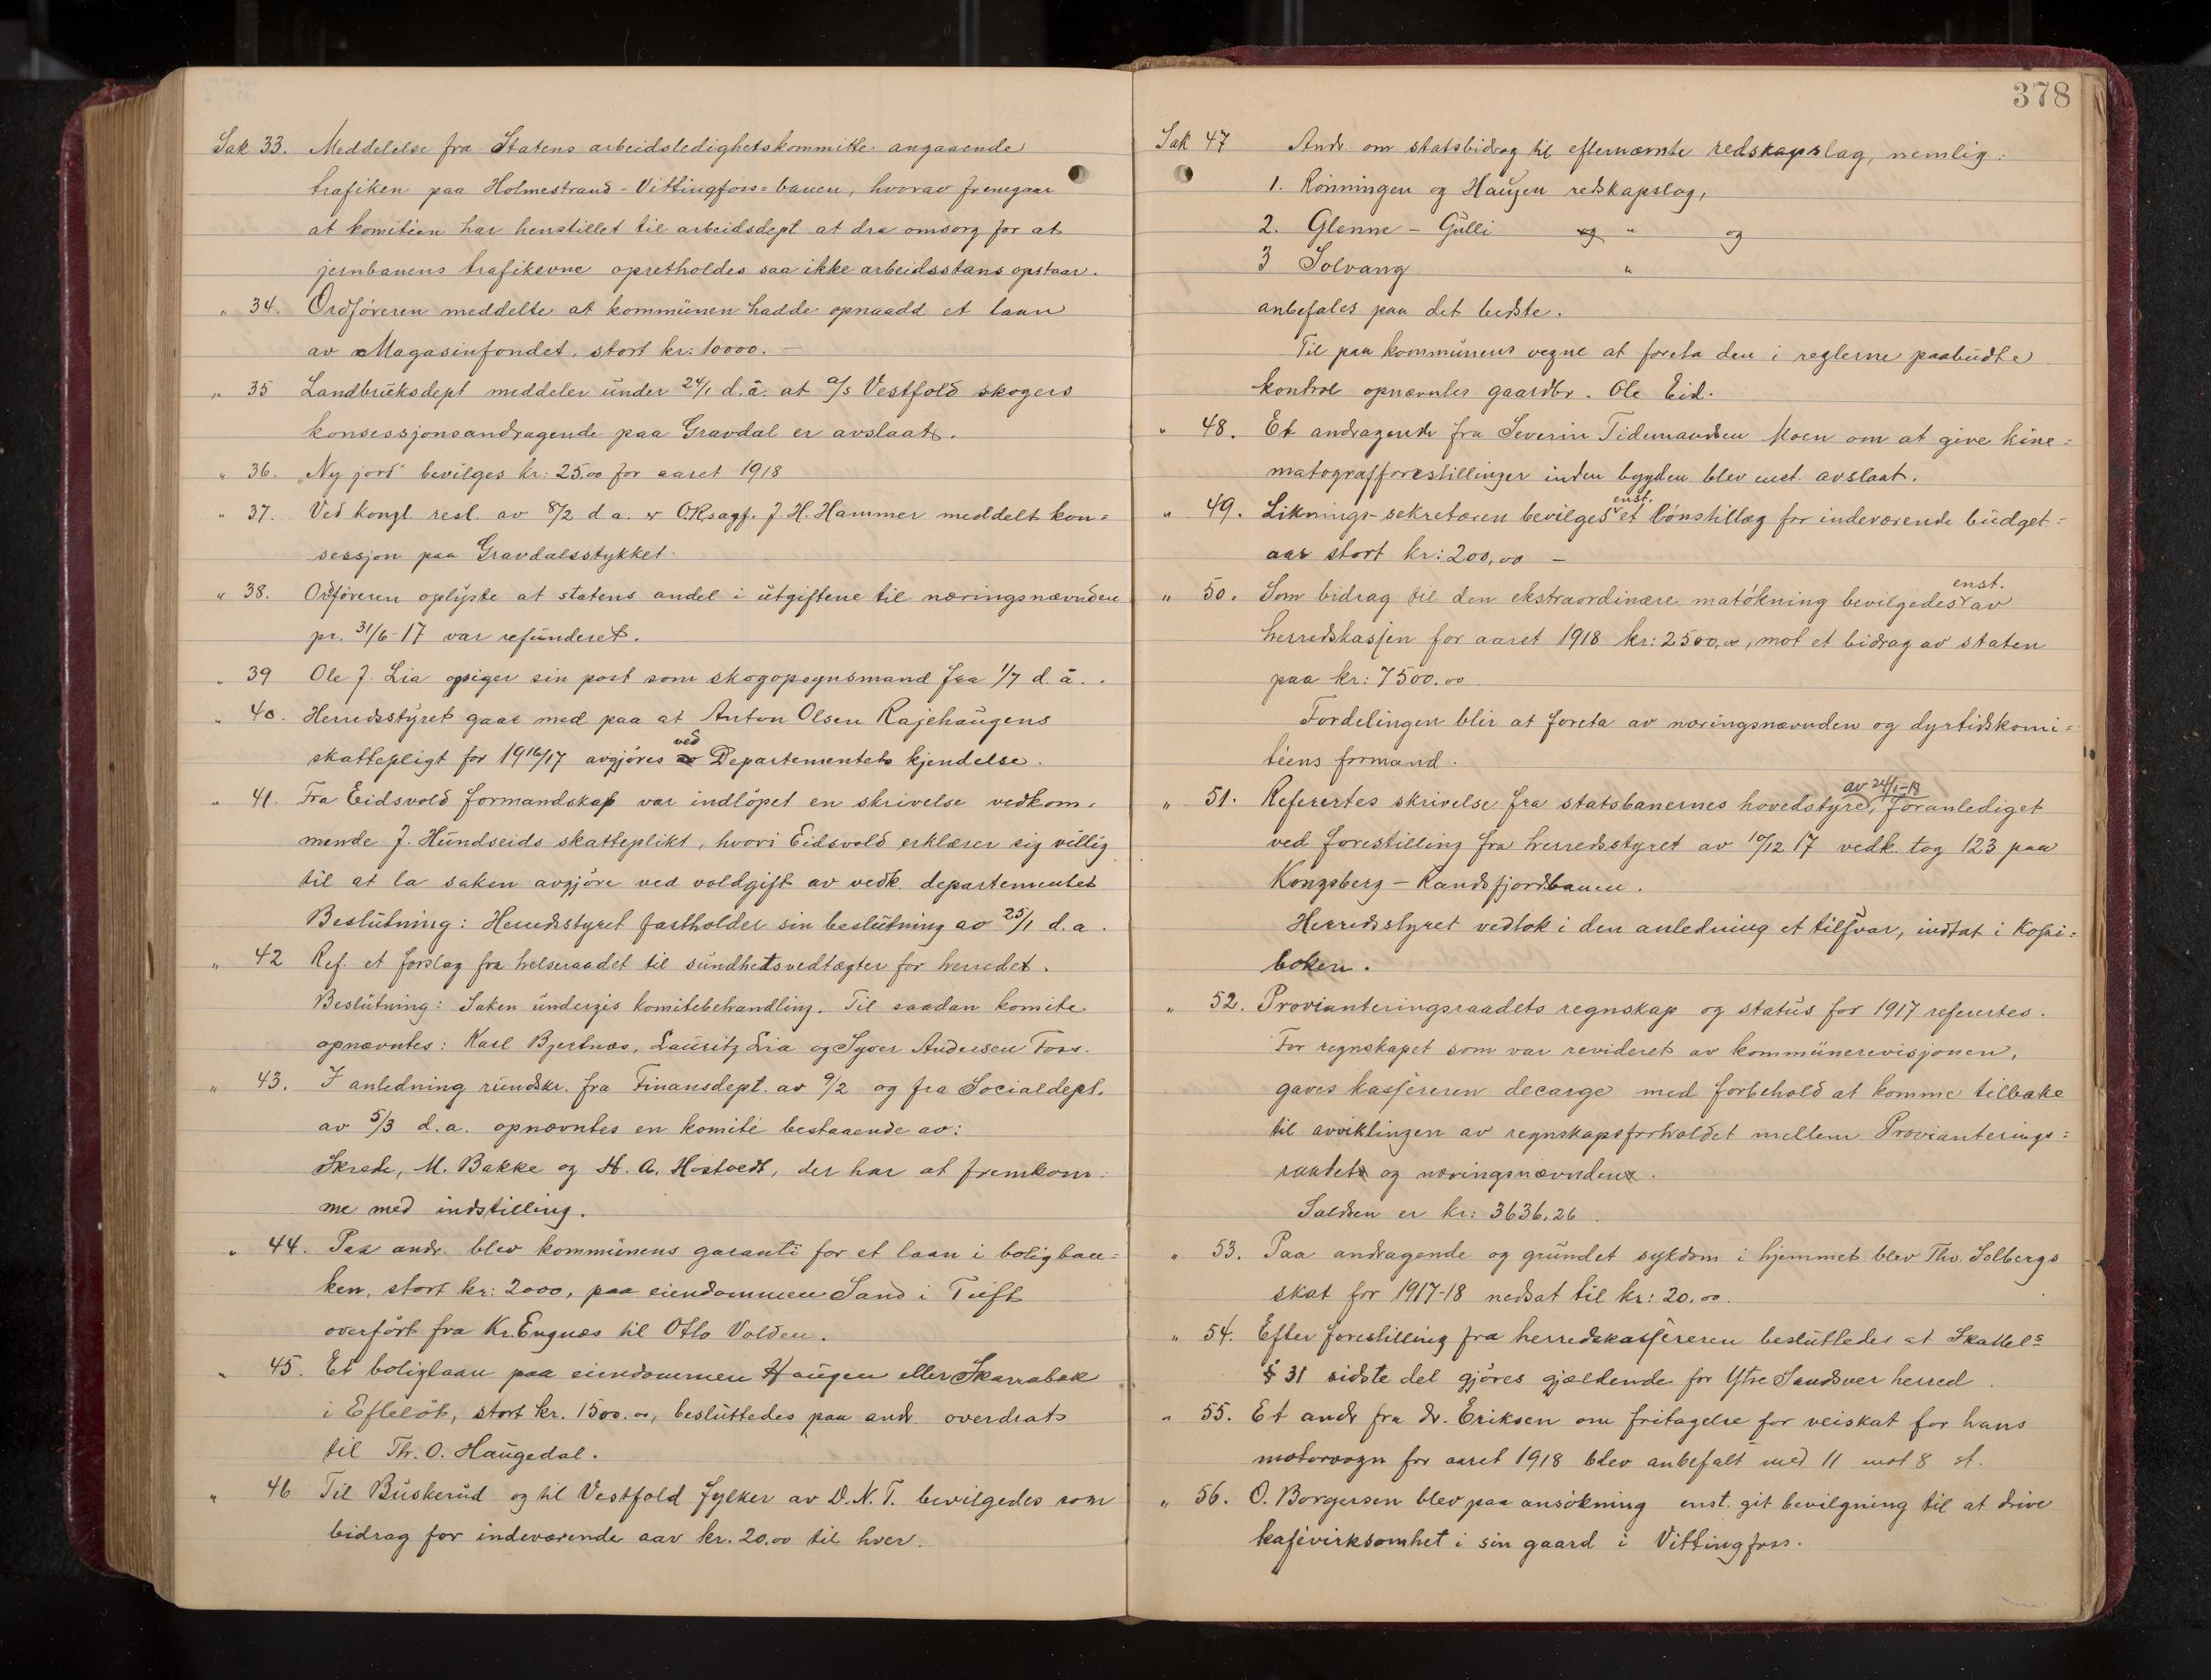 Sak 33. Meddelelse fra Statens arbeidsledighetskommitte angaaende
trafiken paa Holmestrand-Vittingfoss=banen, hvorav fremgaar
at komitéen har henstillet til arbeidsdept at dra omsorg for at
jernbanens trafikevne opretholdes saa ikke arbeidsstans opstaar.
" 34. Ordföreren meddelte at kommunen hadde opnaadd et laan
av Magasinfondet, stort kr: 10000. —
" 35 Landbruksdept meddeler under 24/1 d.å. at a/s Vestfold skogers
konsessjonsandragende paa Gravdal er avslaat.
" 36. „Ny jord" bevilges kr: 25.00 for aaret 1918
" 37. Ved kongl. resl. av 8/2 d a. er O.R.sagf. J. H. Hammer meddelt kon=
sessjon paa Gravdalsstykket.
" 38. Ordföreren oplyste at statens andel i utgiftene til næringsnævnden
pr. 31/6-17 var refunderet.
" 39 Ole J. Lia opsiger sin post som skogopsynsmand fra 1/7 d. å..
" 40. Herredsstyret gaar med paa at Anton Olsen Rajehaugens
skattepligt for 1916/17 avgjöres ved Departementets kjendelse.
" 41. Fra Eidsvold formandskap var indlöpet en skrivelse vedkom=
mende J. Hundseids skatteplikt, hvori Eidsvold erklærer sig villig
til at la saken avgjöre ved voldgift av vedk. departementet
Beslutning: Herredsstyret fastholder sin beslutning av 25/1 d. a.
" 42 Ref. et forslag fra helseraadet til sundhetsvedtægter for herredet.
Beslutning: Saken undergis komitebehandling. Til saadan komite
opnævntes: Karl Bjertnæs, Lauritz Lia og Syver Andersen Foss.
" 43. I anledning rundskr. fra Finansdept. av 9/2 og fra Socialdept.
av 5/3 d.a. opnævntes en komité bestaaende av:
Skrede, M. Bakke og H. A. Hostvedt, der har at fremkom=
me med indstilling.
" 44. Paa andr. blev kommunens garanti for et laan i boligban=
ken, stort kr: 2000, paa eiendommen Sand i Tuft
overfört fra Kr. Engnæs til Otto Volden.
" 45. Et boliglaan paa eiendommen Haugen eller Skarrabek
i Eftelöt, stort kr. 1500.00, besluttedes paa andr. overdrat
til Th. O. Haugedal.
" 46 Til Buskerud og til Vestfold fylker av D.N.T. bevilgedes som
bidrag for indeværende aar kr. 20.00 til hver.
378
Sak 47 Andr. om statsbidrag til efternævnte redskapslag, nemlig:
1. Rönningen og Haugen redskapslag,
2. Glenne - Gulli " og
3 Solvang "
anbefales paa det bedste.
Til paa kommunens vegne at foreta den i reglerne paabudte
kontrol opnævntes gaardbr. Ole Eid.
" 48. Et andragende fra Severin Tidemandsen Moen om at give kine=
matografforestillinger inden bygden blev enst. avslaat.
" 49. Liknings-sekretæren bevilges enst. et lönstillæg for indeværende budget=
aar stort kr: 200,00 —
" 50. Som bidrag til den ekstraordinære matökning bevilgedes enst. av
herredskassen for aaret 1918 kr: 2500,00, mot et bidrag av staten
paa kr: 7500.00
Fordelingen blir at foreta av næringsnævnden og dyrtidskomi=
téens formand.
" 51. Refertes skrivelse fra statsbanernes hovedstyre, av 24/1-18 foranlediget
ved forestilling fra herredsstyret av 10/12 17 vedk. tog 123 paa
Kongsberg - Randsfjordbanen.
Herredsstyret vedtok i den anledning et tilsvar, indtat i Kopi=
boken.
" 52. Provianteringsraadets regnskap og status for 1917 refertes.
For regnskapet som var revideret av kommunerevisjonen,
gaves kassereren decarge med forbehold at komme tilbake
til avviklingen av regnskapsforholdet mellem Provianterings=
raadet og næringsnævnden.
Saldoen er kr: 3636,26.
" 53. Paa andragende og grundet sykdom i hjemmet blev Thv. Solbergs
skat for 1917-18 nedsat til kr: 20.00.
" 54. Efter forestilling fra herredskassereren besluttedes at Skattel=
§ 31 sidste del gjöres gjældende for Ytre Sandsver herred.
" 55. Et andr fra dr. Eriksen om fritagelse for veiskat for hans
motorvogn for aaret 1918 blev anbefalt med 11 mot 8 st.
" 56. O. Borgersen blev paa ansökning enst. git bevilgning til at drive
kafévirksomhet i sin gaard i Vittingfoss.